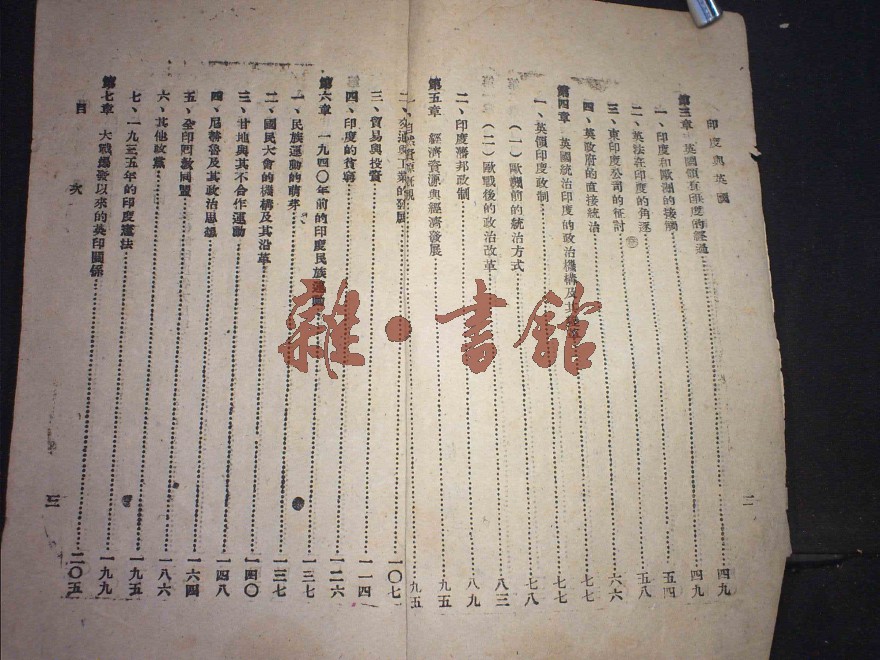 印度與英國 二
第三章 英國領有印度的經過……四九
一、印度和歐洲的接觸……四九
二、英法在印度的角逐……五四
三、東印度公司的征討……五八
四、英政府的直接統治……六六
第四章 英國統治印度的政治機構及其……七七
一、英領印度政制……七七
(一)歐戰前的統治方式……七八
(二)歐戰後的政治改革……八三
二、印度藩邦政制……八九
第五章 經濟資源與經濟發展……九五
一、自然資源概觀……九五
二、交通與工業的發展……一〇七
三、貿易與投資……一一四
四、印度的貧窮……一二六
第六章 一九四〇年前的印度民族運動……一三七
一、民族運動的萌芽……一三七
二、國民大會的機構及其沿革……一四〇
三、甘地與其不合作運動……一四八
四、尼赫魯及其政治思想……一六四
五、全印回教同盟……一八六
六、其他政黨……一九五
七、一九三五年的印度憲法……一九九
第七章 大戰爆發以來的英印關係……二〇五
目次 三
雜·書館